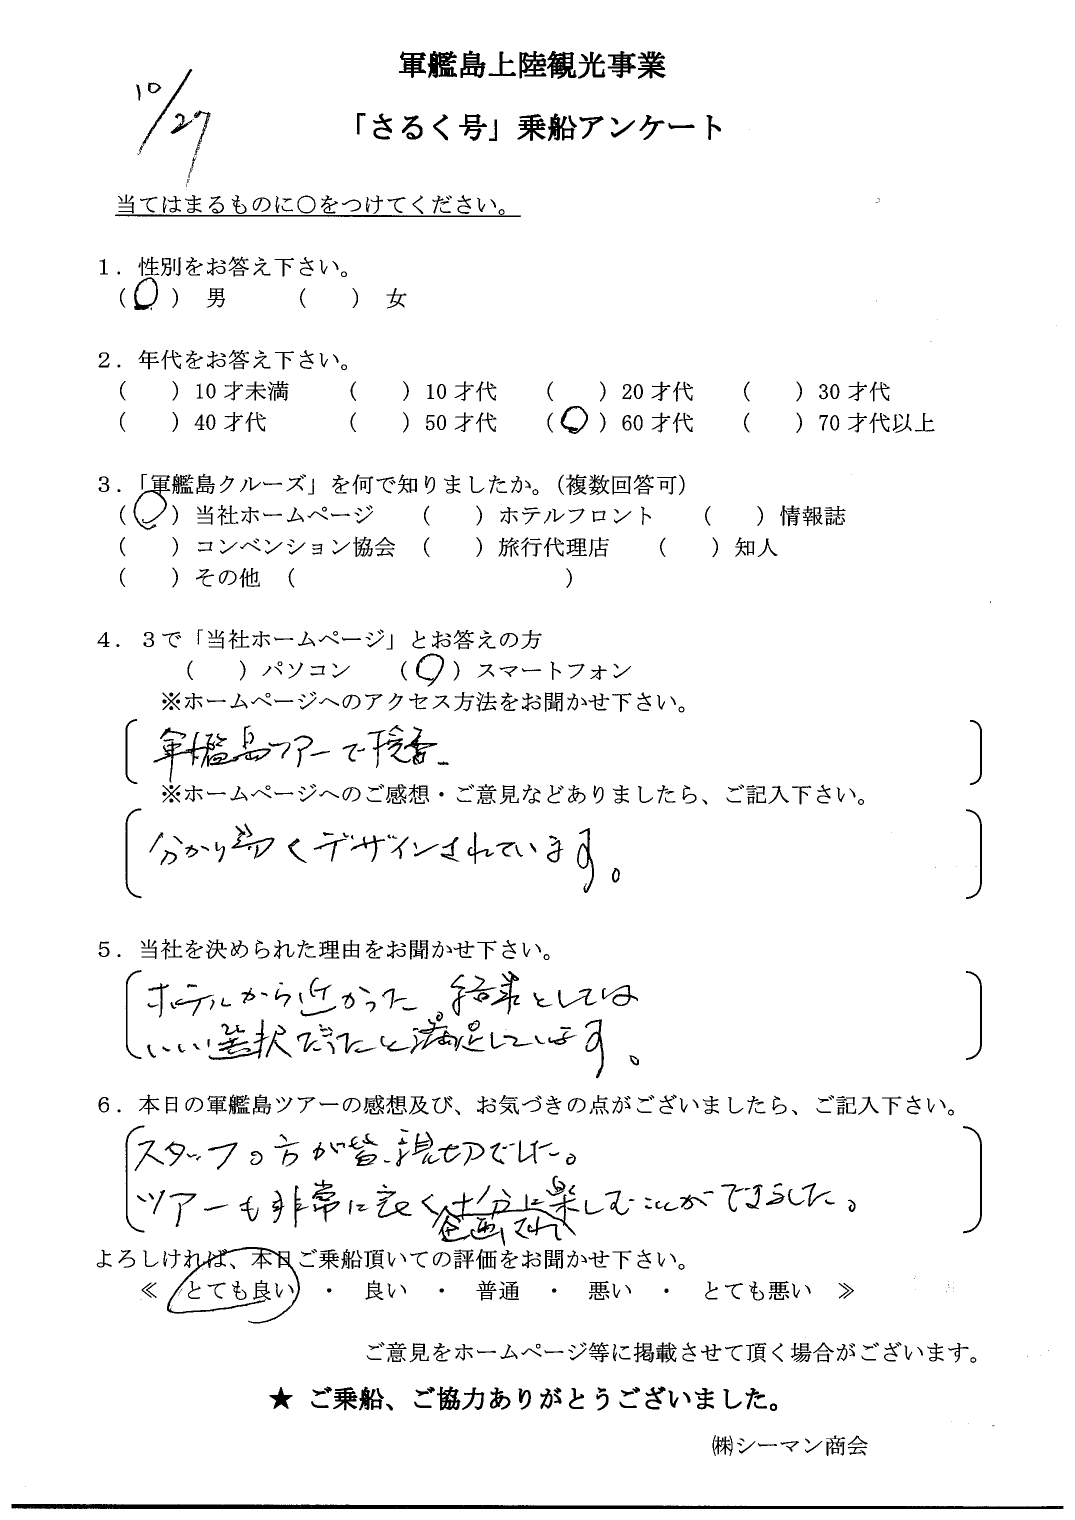 軍艦島上陸観光事業
10/27
「さるく号」乗船アンケート
当てはまるものに○をつけてください。
1．性別をお答え下さい。
(○) 男 ( ) 女
2．年代をお答え下さい。
( ) 10才未満 ( ) 10才代 ( ) 20才代 ( ) 30才代
( ) 40才代 ( ) 50才代 (○) 60才代 ( ) 70才代以上
3．「軍艦島クルーズ」を何で知りましたか。（複数回答可）
(○) 当社ホームページ ( ) ホテルフロント ( ) 情報誌
( ) コンベンション協会 ( ) 旅行代理店 ( ) 知人
( ) その他 ( )
4．3で「当社ホームページ」とお答えの方
( ) パソコン (○) スマートフォン
※ホームページへのアクセス方法をお聞かせ下さい。
軍艦島ツアーで検索
※ホームページへのご感想・ご意見などありましたら、ご記入下さい。
分かり易くデザインされています。
5．当社を決められた理由をお聞かせ下さい。
ホテルから近かった。結果としては
いい選択だったと満足しています。
6．本日の軍艦島ツアーの感想及び、お気づきの点がございましたら、ご記入下さい。
スタッフの方が皆親切でした。
ツアーも非常に良く企画されて十分に楽しむことができました。
よろしければ、本日ご乗船頂いての評価をお聞かせ下さい。
≪ とても良い ・ 良い ・ 普通 ・ 悪い ・ とても悪い ≫
ご意見をホームページ等に掲載させて頂く場合がございます。
★ ご乗船、ご協力ありがとうございました。
㈱シーマン商会